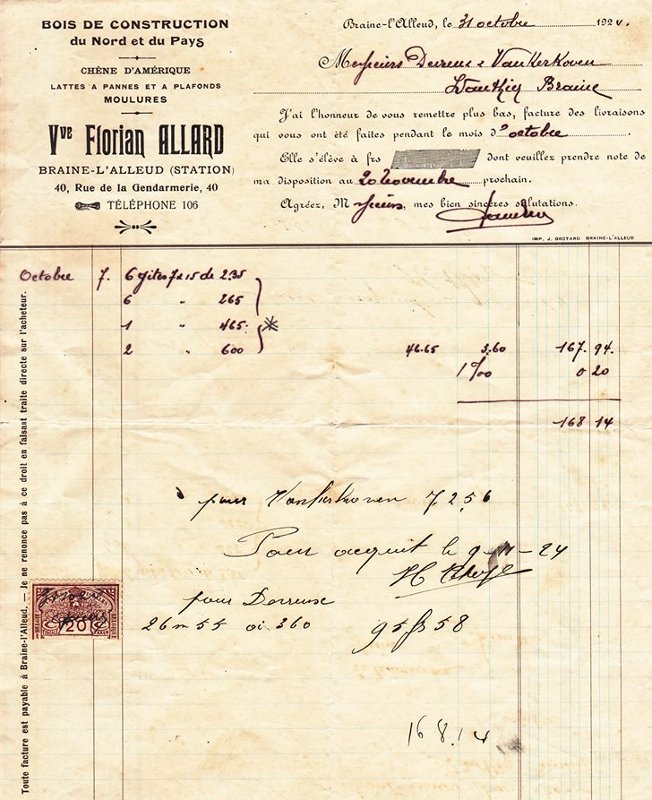 BOIS DE CONSTRUCTION
du Nord et du Pays
CHÊNE D'AMÉRIQUE
LATTES A PANNES ET A PLAFONDS
MOULURES
Vve Florian ALLARD
BRAINE-L'ALLEUD (STATION)
40, Rue de la Gendarmerie, 40
TÉLÉPHONE 106
Braine-l'Alleud, le 31 octobre 1924.
Messieurs Derreux & Vankerkoven
Wauthier Braine
J'ai l'honneur de vous remettre plus bas, facture des livraisons
qui vous ont été faites pendant le mois d'octobre
Elle s'élève à frs dont veuillez prendre note de
ma disposition au 20 novembre prochain.
Agréez, Messieurs, mes bien sincères salutations.
IMP. J. GROTARD BRAINE-L'ALLEUD
Octobre 7. 6 gites 7x15 de 235
6 " 265
1 " 465
2 " 600 46.65 3.60 167.94
1 ‰ 0 20
168 14
pour Vankerkoven 72.56
Pour acquit le 9-11-24
pour Derreuse
26 m 55 oi 360 95 fs 58
20
168.14
Toute facture est payable à Braine-l'Alleud. — Je ne renonce pas à ce droit en faisant traite directe sur l'acheteur.